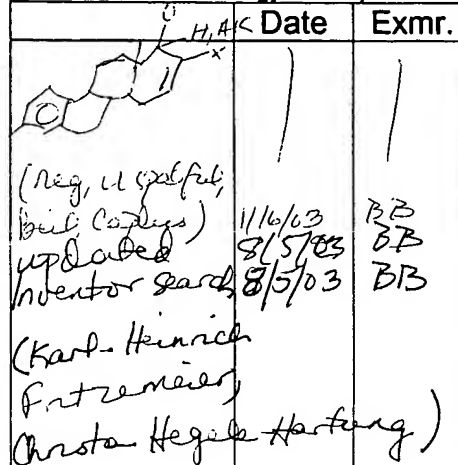 Date Exmr.
O
H, AK
X
(Reg, uspatful,
beil Caplus) 1/6/03 BB
updated 8/5/03 BB
Inventor search 8/5/03 BB
(Karl-Heinrich
Fritzemeier,
Christa Hegele-Hartung)